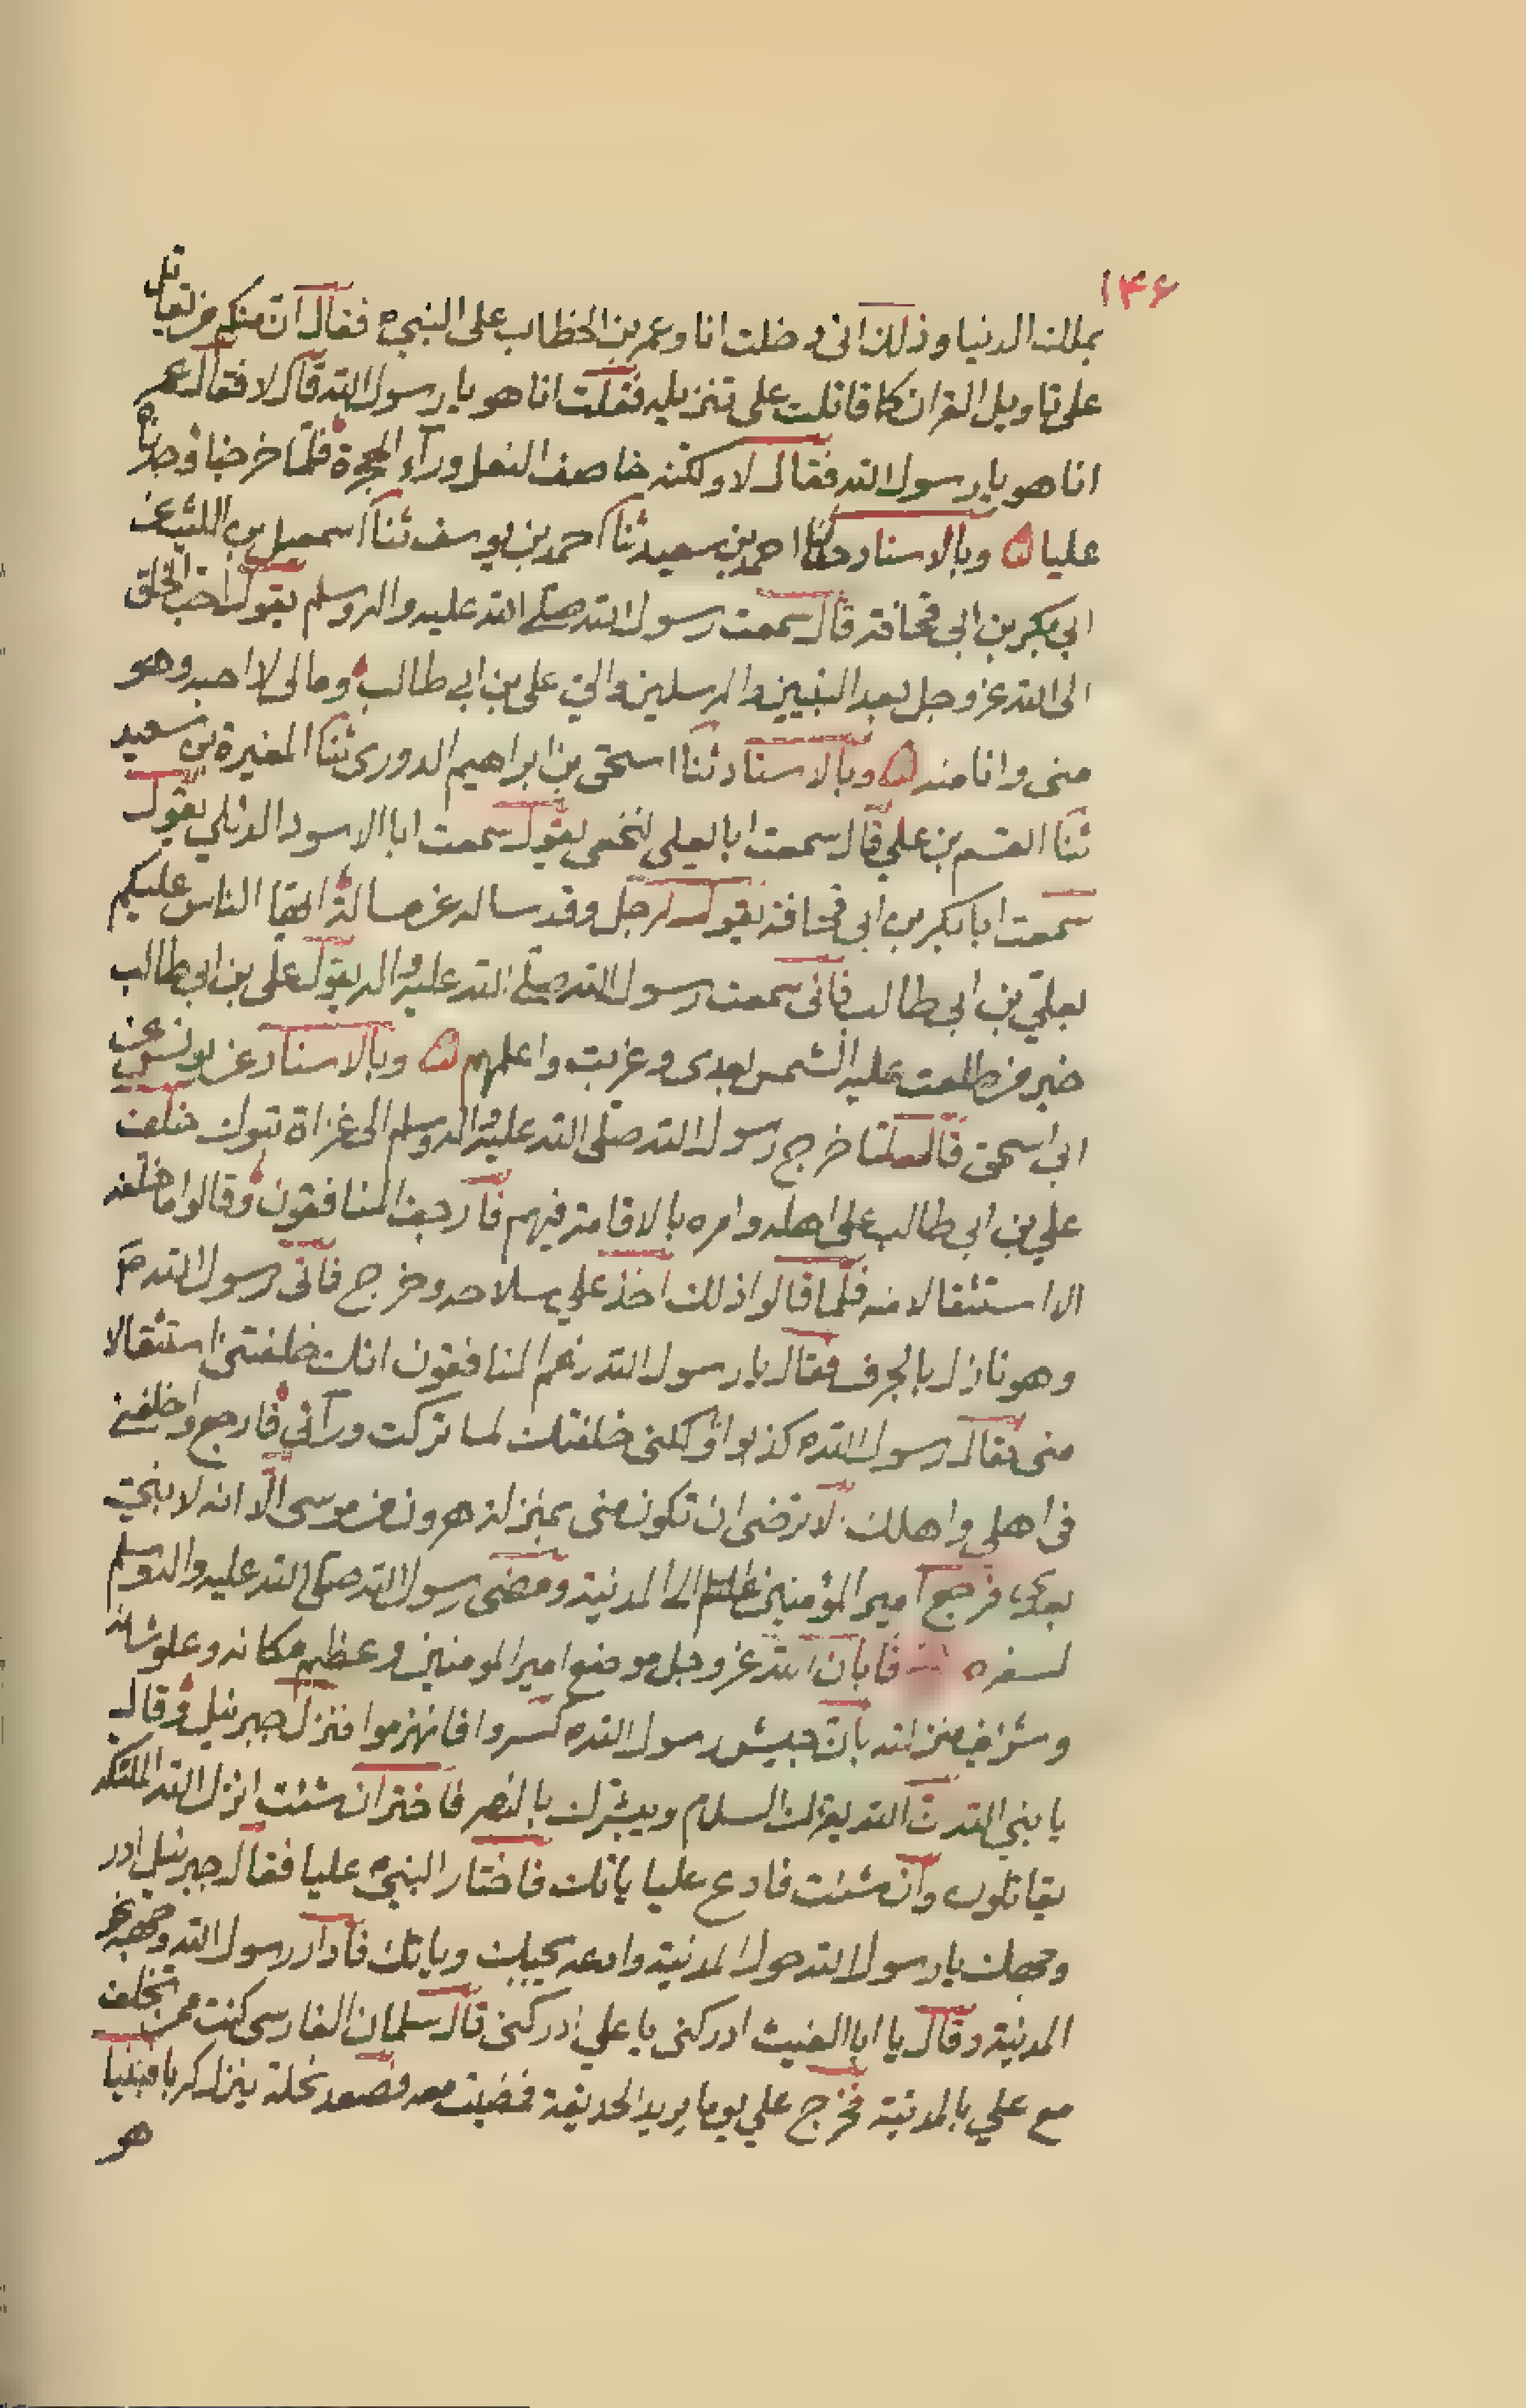 ۱۴۶
بملك الدنيا وذلك انى دخلت انا وعمر بن الخطاب على النبى ص فقال ان منكم من يقاتل
على تاويل القران كما قاتلت على تنزيله فقلت انا هو يا رسول الله قال لا فقال عمر
انا هو يا رسول الله فقال لا ولكنه خاصف النعل وراء الحجرة فلما خرجنا وجدناه
عليا ه وبالاسناد حدثنا احمد بن سعيد ثنا احمد بن يوسف ثنا اسمعيل بن الليث عن
ابي بكر بن ابى قحافة قال سمعت رسول الله صلى الله عليه واله وسلم يقول احب الخلق
الى الله عز وجل بعد النبيين والمرسلين والي على بن ابي طالب وما لى لا احبه وهو
منى وانا منه ه وبالاسناد ثنا اسحق بن ابراهيم الدورى ثنا المغيرة بن سعيد
ثنا القسم بن علي قال سمعت ابا يعلى لنخعى يقول سمعت ابا الاسود الدئلي يقول
سمعت ابا بكر بن ابى قحافة يقول لرجل وقد ساله عن مسالة ايها الناس عليكم
بعلي بن ابى طالب فانى سمعت رسول الله صلى الله عليه واله يقول على بن ابى طالب
خير من طلعت عليه الشمس بعدى وغربت واعلمهم ه وبالاسناد عن يونس عن
ابى اسحق قال لما خرج رسول الله صلى الله عليه واله وسلم الى غزاة تبوك خلف
علي بن ابى طالب على اهله وامره بالاقامة فيهم فارجف المنافقون وقالوا ما خلفه
الا استثقالا منه فلما قالوا ذلك اخذ علي سلاحه وخرج فاتى رسول الله ص
وهو نازل بالجرف فقال يا رسول الله زعم المنافقون انك خلفتنى استثقالا
منى فقال رسول الله ص كذبوا ولكنى خلفتك لما تركت ورائى فارجع واخلفنى
فى اهلى واهلك لا ترضى ان تكون منى بمنزلة هرون من موسى الا انه لا نبى
بعدى فرجع امير المؤمنين الى المدينة ومضى رسول الله صلى الله عليه واله وسلم
لسفره فابان الله عز وجل موضع امير المومنين وعظم مكانه وعلو شانه
وشرف من الله بان جيش رسول الله ص كسروا فانهزموا فنزل جبرئيل وقال
يا نبى الله ان الله يقرئك السلام ويبشرك بالنصر فاختر ان شئت انزل الله الملئكة
يقاتلون وان شئت فادع عليا ياتك فاختار النبى ص عليا فقال جبرئيل ادر
وجهك يا رسول الله حول المدينة وادعه يجيبك وياتك فادار رسول الله وجهه نحو
المدينة وقال يا ابا الغيث ادركنى يا علي ادركنى قال سلمان الفارسى كنت ممن تخلف
مع علي بالمدينة فخرج علي يوما يريد الحديقة فمضيت معه فصعد نخلة ينزل كربا فبينا
هو